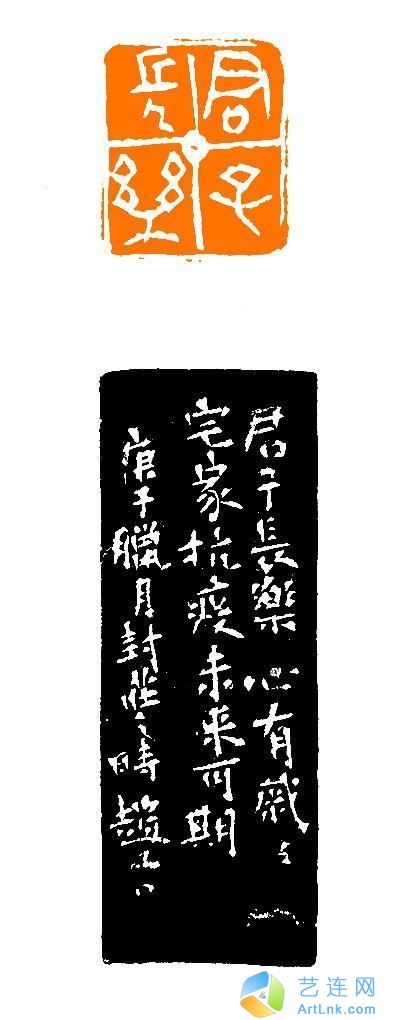 君子
長樂
君子長樂心有戚
宅家抗疫未来可期
庚子臘月封莊之時趙
艺连网
ArtLnk.com